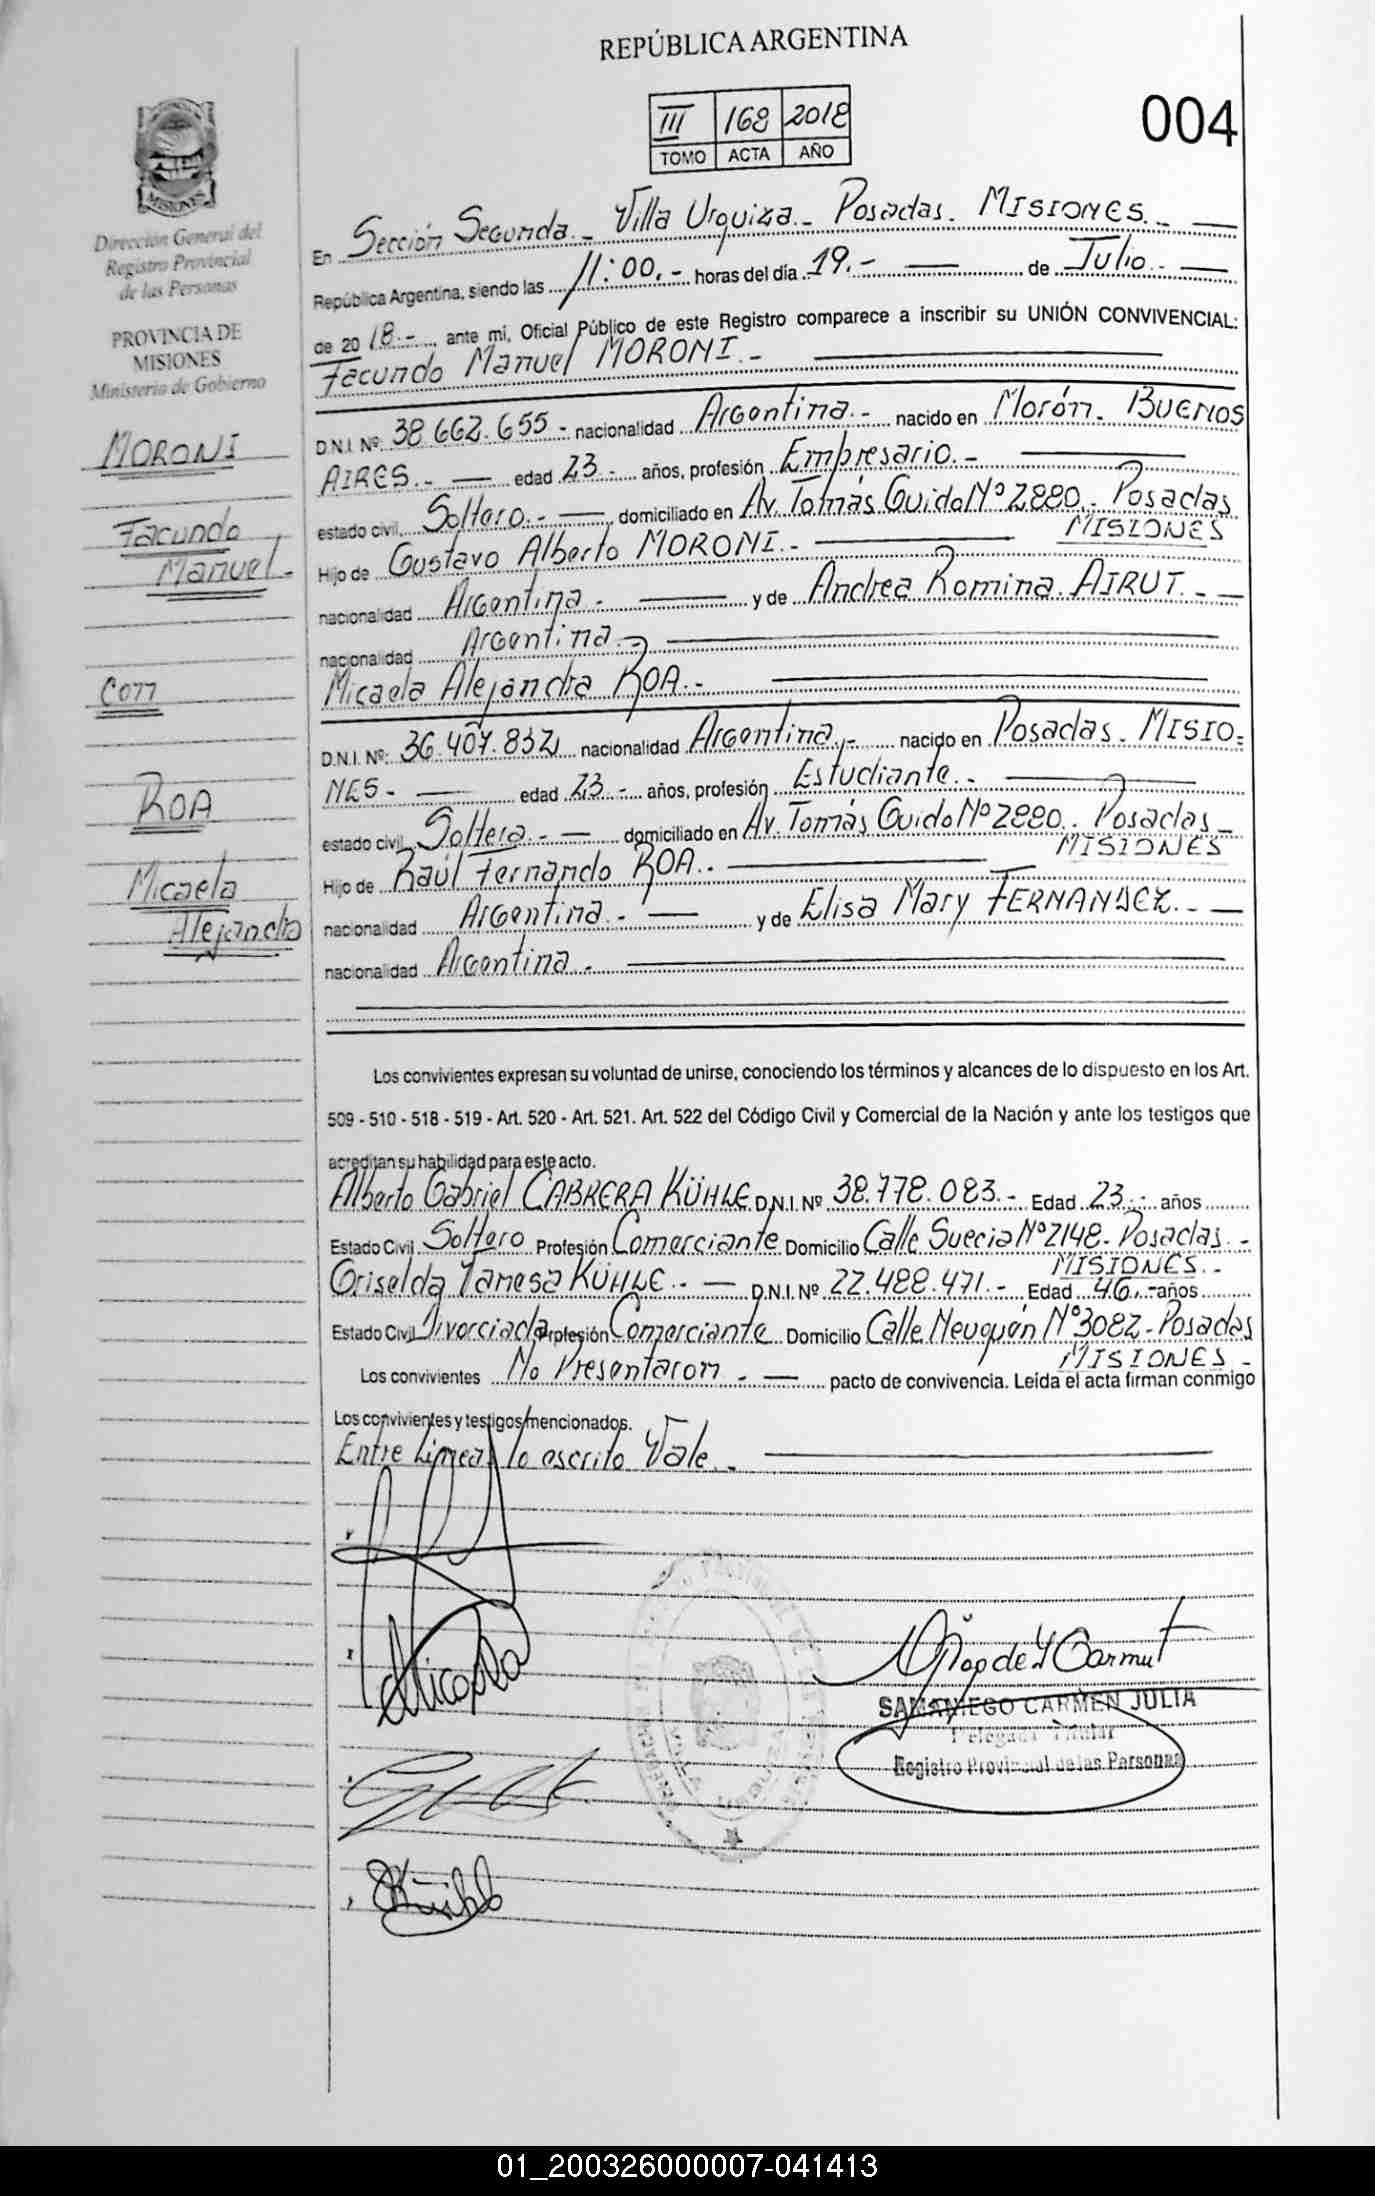 REPÚBLICA ARGENTINA
III 168 2018
TOMO ACTA AÑO
004
MISIONES
Dirección General del
Registro Provincial
de las Personas
PROVINCIA DE
MISIONES
Ministerio de Gobierno
MORONI
Facundo
Manuel.-
Con
ROA
Micaela
Alejandra
En Sección Segunda.- Villa Urquiza.- Posadas. MISIONES.-
República Argentina, siendo las 11:00.- horas del día 19.- de Julio.-
de 20 18.- ante mi, Oficial Público de este Registro comparece a inscribir su UNIÓN CONVIVENCIAL:
Facundo Manuel MORONI.-
D.N.I. Nº: 38.662.655.- nacionalidad Argentina.- nacido en Morón. BUENOS
AIRES.- edad 23.- años, profesión Empresario.-
estado civil, Soltero.- domiciliado en Av. Tomás Guido Nº 2880. Posadas
MISIONES
Hijo de Gustavo Alberto MORONI.-
nacionalidad Argentina.- y de Andrea Romina AIRUT.-
nacionalidad Argentina.-
Micaela Alejandra ROA.-
D.N.I. Nº: 36.407.832 nacionalidad Argentina.- nacido en Posadas. MISIO-
NES.- edad 23.- años, profesión Estudiante.-
estado civil, Soltera.- domiciliado en Av. Tomás Guido Nº 2880. Posadas
MISIONES
Hijo de Raúl Fernando ROA.-
nacionalidad Argentina.- y de Elisa Mary FERNANDEZ.-
nacionalidad Argentina.-
Los convivientes expresan su voluntad de unirse, conociendo los términos y alcances de lo dispuesto en los Art.
509 - 510 - 518 - 519 - Art. 520 - Art. 521. Art. 522 del Código Civil y Comercial de la Nación y ante los testigos que
acreditan su habilidad para este acto.
Alberto Gabriel CABRERA KÜHLE D.N.I. Nº 38.778.083.- Edad 23.- años
Estado Civil Soltero Profesión Comerciante Domicilio Calle Suecia Nº 2148- Posadas.-
MISIONES.-
Griselda Vanesa KÜHLE.- D.N.I. Nº 22.488.471.- Edad 46.- años
Estado Civil Divorciada Profesión Comerciante Domicilio Calle Neuquén Nº 3082- Posadas
MISIONES.-
Los convivientes No Presentaron.- pacto de convivencia. Leida el acta firman conmigo
Los convivientes y testigos mencionados.
Entre Linea lo escrito Vale.-
SAMANIEGO CARMEN JULIA
Delegada Titular
Registro Provincial de las Personas
VILLA URQUIZA
01_200326000007-041413